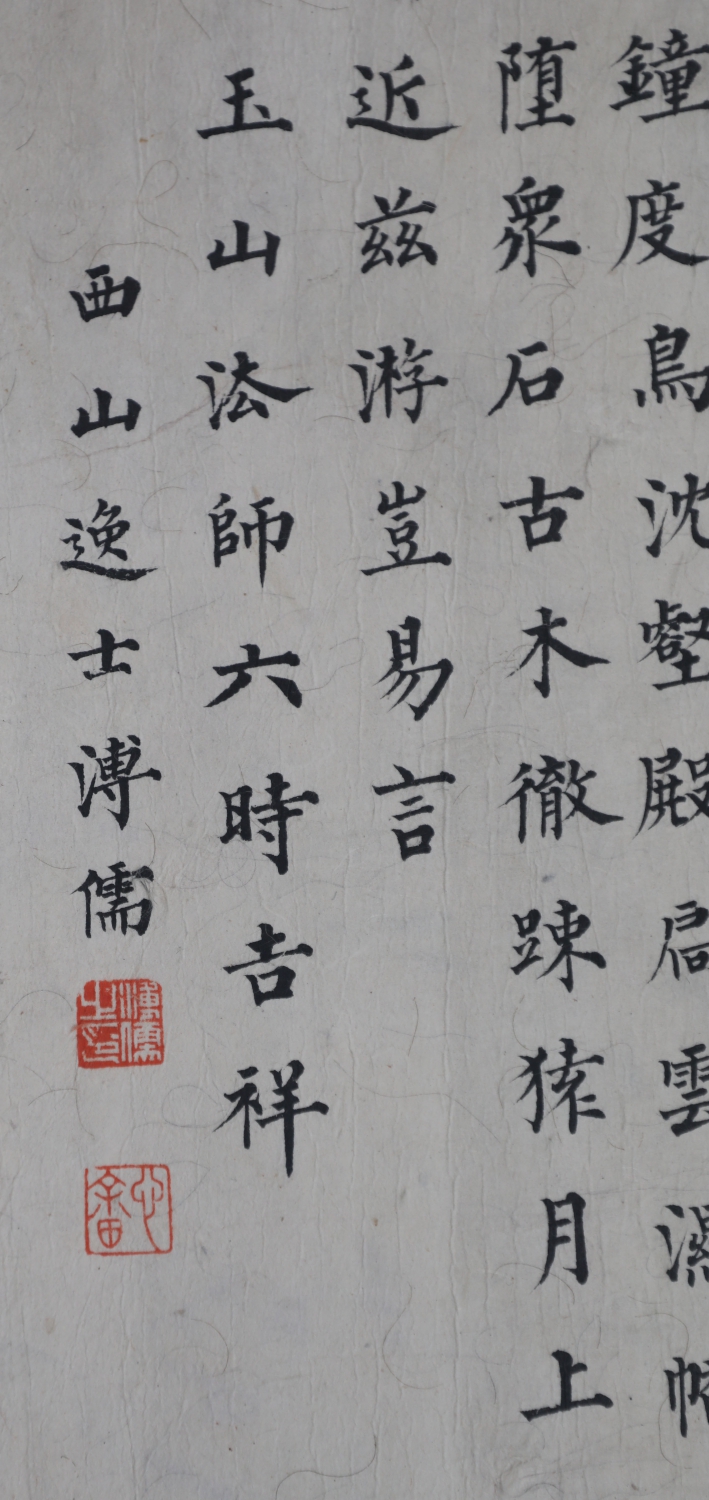 鐘度鳥沈壑殿扃雲濕
堕衆石古木徹踈猿月上
近兹游豈易言
玉山法師六時吉祥
西山逸士溥儒
溥儒之印
心畬